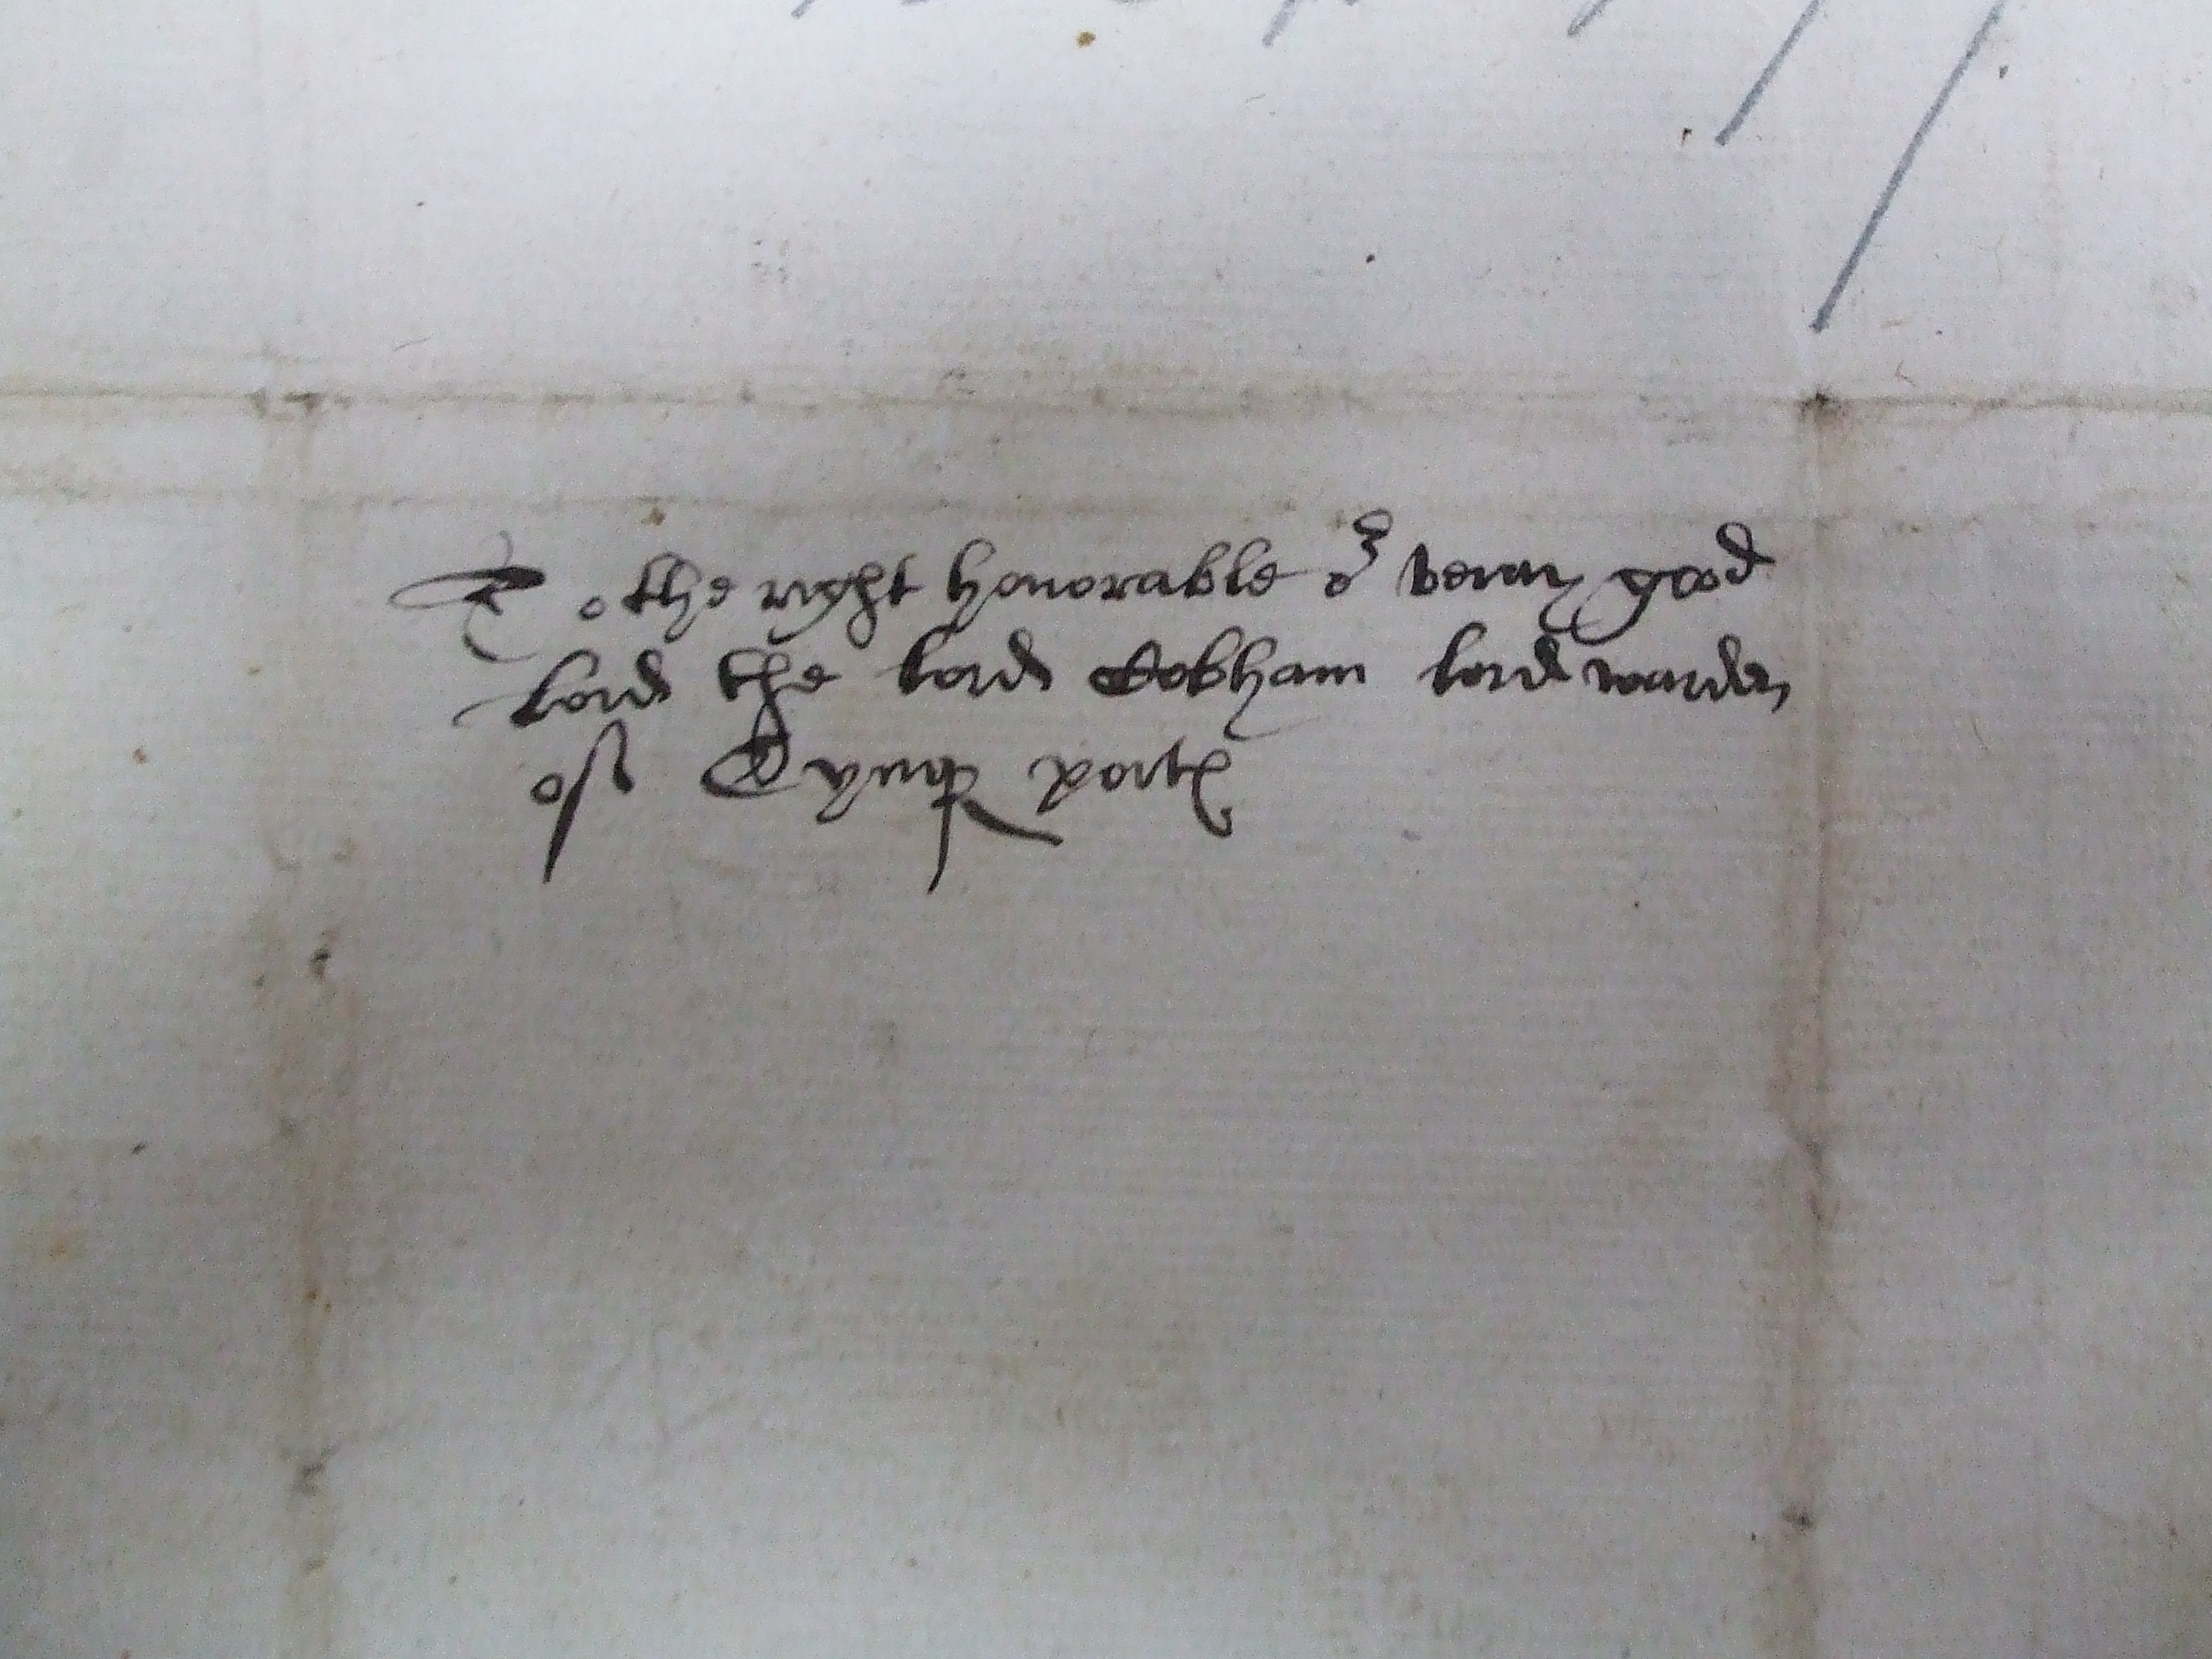 To the right honorable or verry good
Lord the lord Cobham lord warden
of Cynq portes